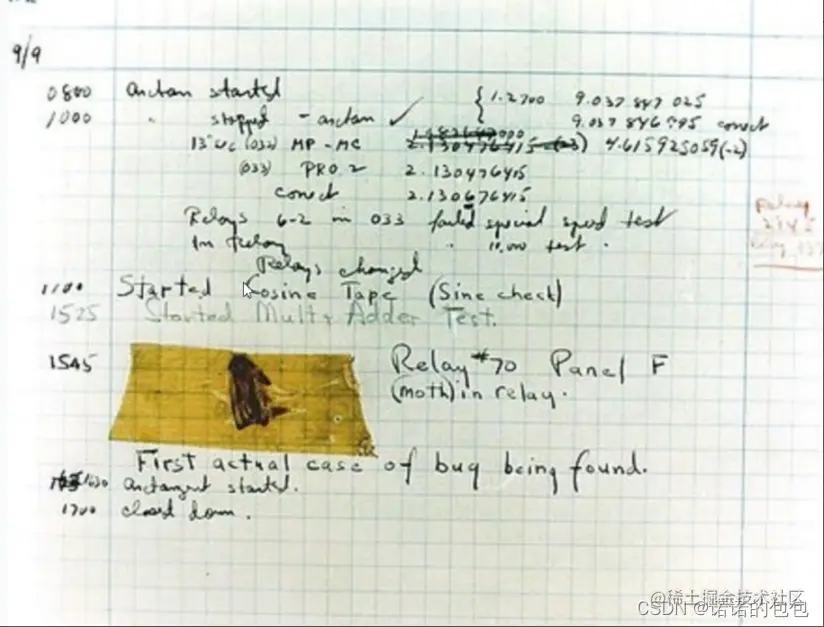 9/9
0800 arctan started { 1.2700 9.037 847 025
1000 " stopped - arctan ✓ 9.037 846 995 correct
13"uc (032) MP - MC 2.130476415 (-3) 4.615925059(-2)
(033) PRO. 2 2.130476415
correct 2.130676415
Relays 6-2 in 033 failed special speed test
In Relay " 10.000 test .
Relays changed
1100 Started Cosine Tape (Sine check)
1525 Started Mult + Adder Test.
1545 Relay #70 Panel F
(moth) in relay.
First actual case of bug being found.
1630 arctangent started.
1700 closed down.
@稀土掘金技术社区
CSDN @诺诺的包包